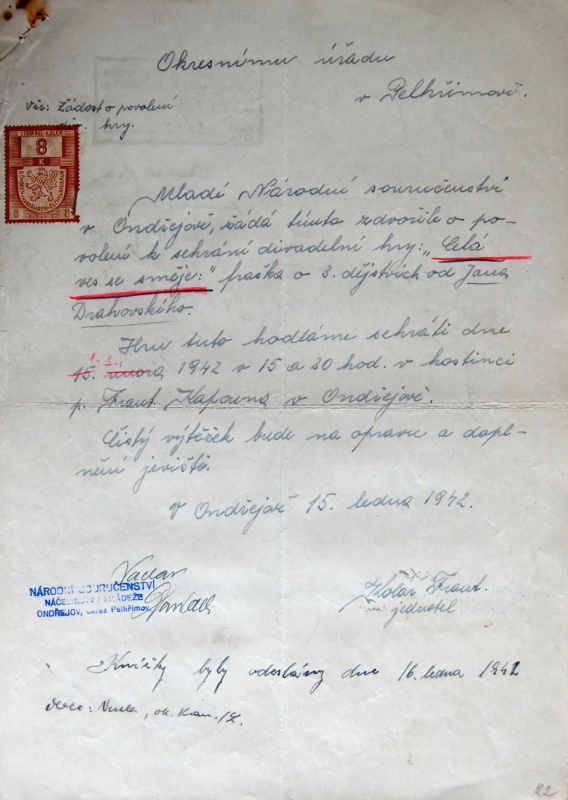 Okresnímu úřadu
v Pelhřimově.
Věc: Žádost o povolení
div. hry.
8
K
Mladí Národní souručenství
v Ondřejově, žádá tímto zdvořile o po-
volení k sehrání divadelní hry: „Celá
ves se směje:" fraška o 3. dějstvích od Jana
Drahovského.
Hru tuto hodláme sehráti dne
15. února 1942 v 15 a 20 hod. v hostinci
1. 3.
p. Frant. Kapouna v Ondřejově.
Čistý výtěžek bude na opravu a dopl-
nění jeviště.
V Ondřejově 15. ledna 1942.
Václav
NÁRODNÍ SOURUČENSTVÍ
NÁČELNICTVO MLÁDEŽE
ONDŘEJOV, okres Pelhřimov.
Kolář Frant.
jednatel
Knížky byly odeslány dne 16. ledna 1942
22